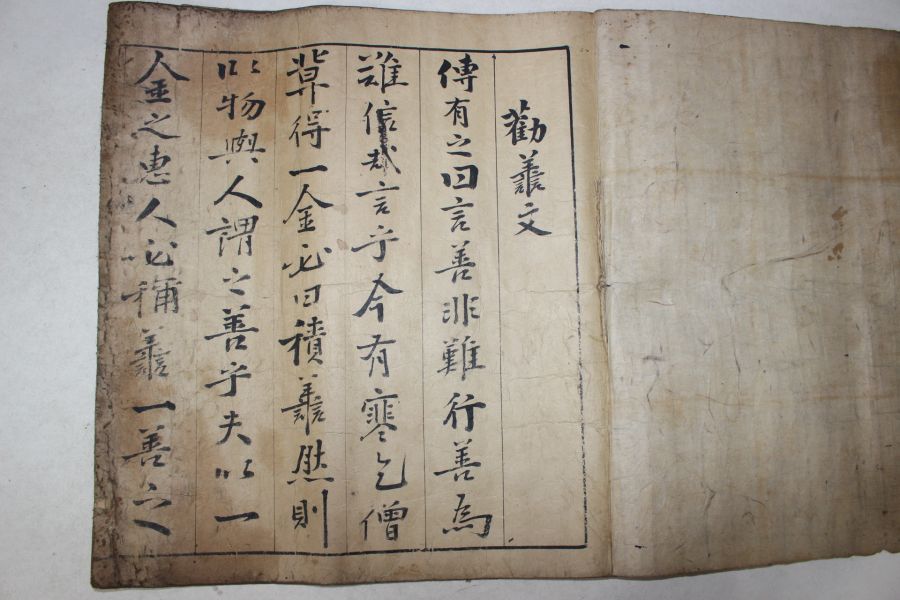 勸譱文
傳有之曰言善非難行善為
難信哉言乎今有寒乞僧
冀得一金必曰積譱然則
以物與人謂之善乎夫以一
金之惠人必稱譱一善之